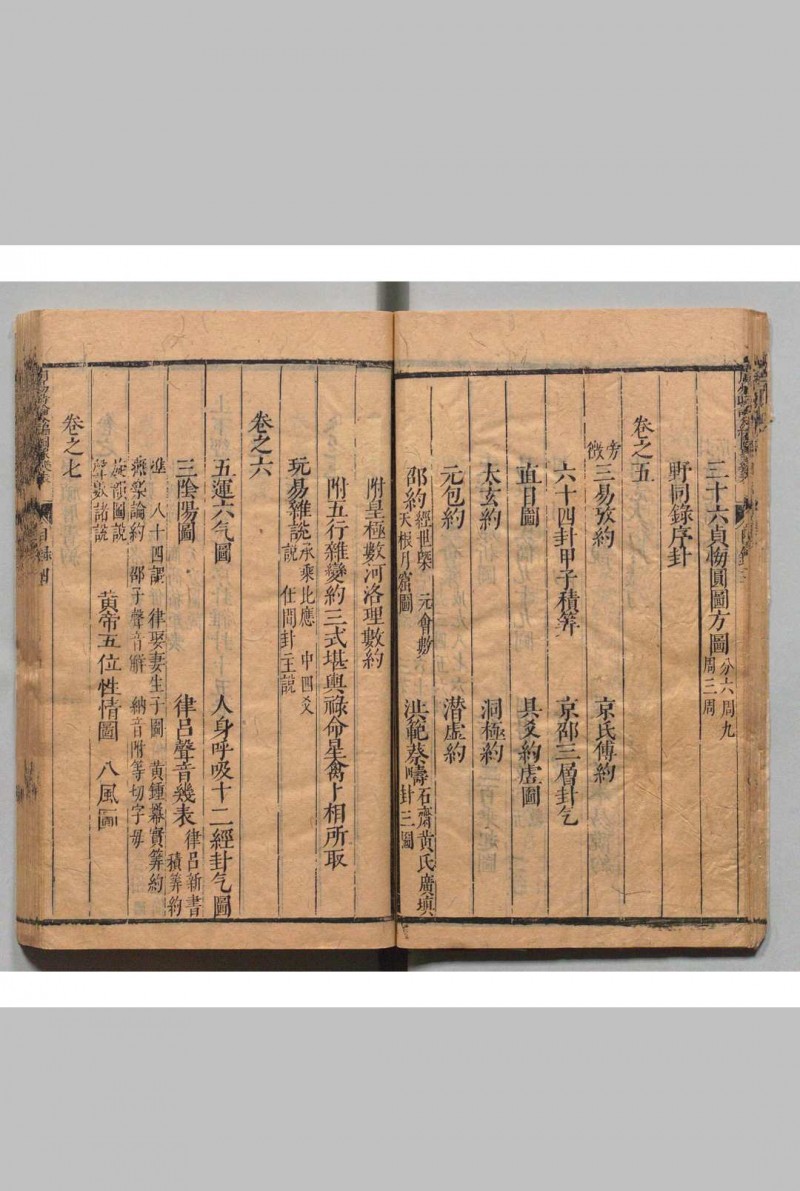 三十六貞悔圓圖方圖 分六周九 周三周
野同錄序卦
卷之五
旁徵 三易攷約 京氏傳約
六十四卦甲子積筭 京邵三層卦气
直日圖 具爻約虛圖
太玄約 洞極約
元包約 潛虛約
邵約 經世槩 元會數 天根月窟圖 洪範蔡疇 石齋黃氏廣填 卦三圖
附皇極數河洛理數約
附五行雜變約三式堪輿祿命星禽卜相所取
玩易雜說 承乘比應 中四爻 說 任間卦主說
卷之六
五運六气圖 人身呼吸十二經卦气圖
三陰陽圖 律呂聲音幾表 律呂新書 積筭約
八十四調 律娶妻生子圖 黃鍾冪實筭約
燕樂論約 邵子聲音解 納音附等切字母
旋韻圖說
聲數諸說 黃帝五位性情圖 八風圖
卷之七